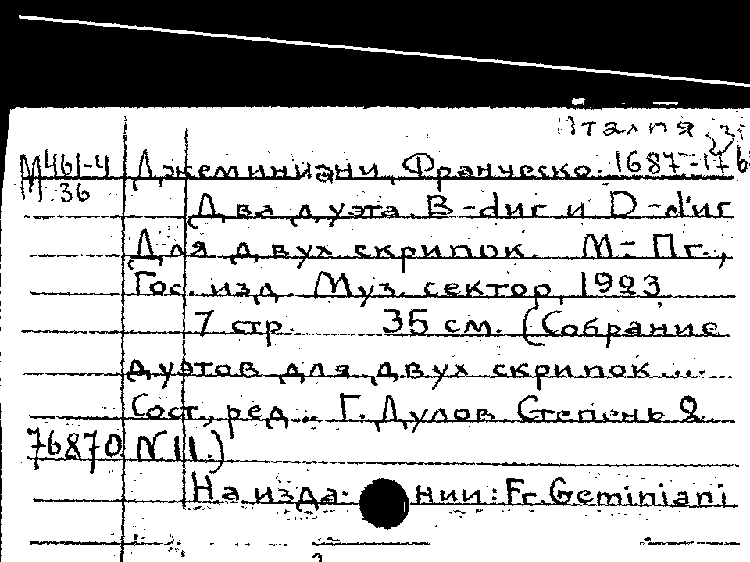 Италия
М 461-4 Джеминиани, Франческо. 1687-176
36
Два дуэта. B-dur и D-dur
Для двух скрипок. М.- Пг.,
Гос. изд. Муз. сектор, 1923
7 стр. 35 см. (Собрание
дуэтов для двух скрипок...
Сост., ред... Г. Дулов Степень 2
76870 N 11.)
На изда- нии: Fr. Geminiani